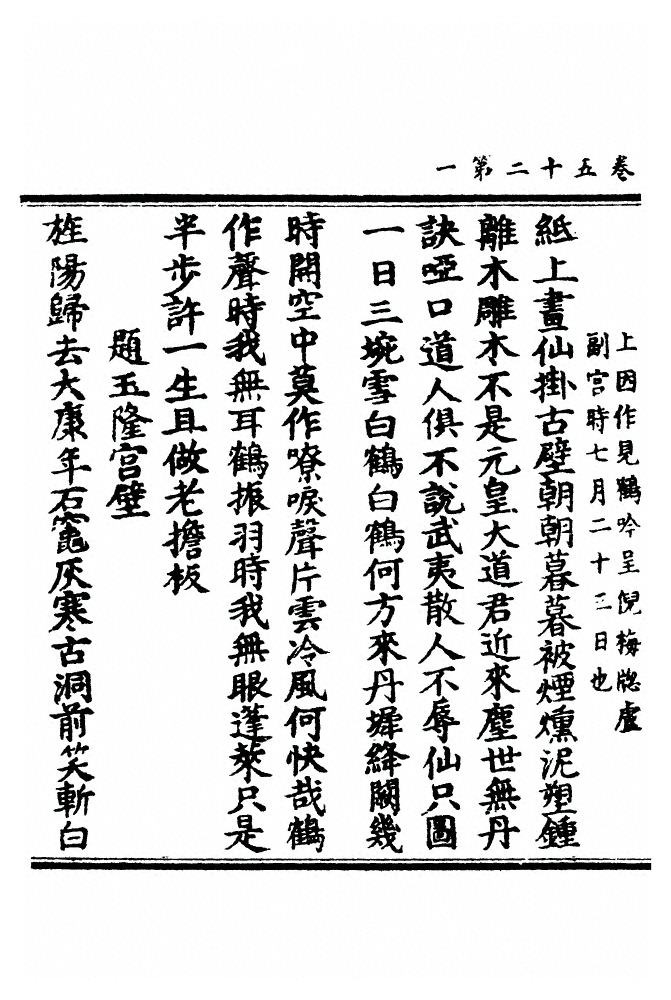 卷五十二第一
上因作見鶴吟呈倪梅牕盧
副宮時七月二十三日也
紙上畫仙掛古壁朝朝暮暮被煙燻泥塑鍾
離木雕木不是元皇大道君近來塵世無丹
訣啞口道人俱不說武夷散人不辱仙只圖
一日三埦雪白鶴白鶴何方來丹墀絳闕幾
時開空中莫作嘹唳聲片雲冷風何快哉鶴
作聲時我無耳鶴振羽時我無眼蓬萊只是
半步許一生且做老擔板
題玉隆宮壁
旌陽歸去太康年石竈灰寒古洞前笑斬白